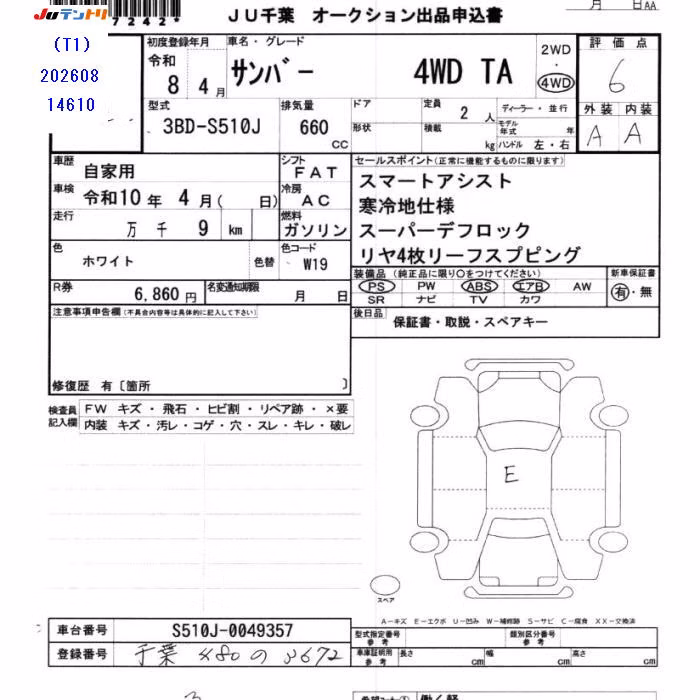 JUテントリ
*7242*
JU千葉 オークション出品申込書
月 日AA
(T1)
202608
14610
初度登録年月
令和
8 4月
車名・グレード
サンバー 4WD TA
2WD
・
4WD
評価点
6
外装 内装
A A
型式
3BD-S510J
排気量
660
CC
ドア
形状
定員 2 人
積載 kg
ディーラー・並行
モデル年式 年
ハンドル 左・右
車歴
自家用
車検
令和10年 4月( 日)
走行
万 千 9 km
シフト
FAT
冷房
AC
燃料
ガソリン
セールスポイント(正常に機能するものに限ります)
スマートアシスト
寒冷地仕様
スーパーデフロック
リヤ4枚リーフスプピング
色
ホワイト
色替
色コード
W19
装備品(純正品に限り○をつけてください)
PS PW ABS エアB AW
SR ナビ TV カワ
新車保証書
有・無
R券
6,860円
名変通知期限
月 日
後日品
保証書・取説・スペアキー
注意事項申告欄(不具合内容等は具体的に記入して下さい)
修復歴 有〔箇所 〕
検査員記入欄
FW キズ・飛石・ヒビ割・リペア跡・×要
内装 キズ・汚レ・コゲ・穴・スレ・キレ・破レ
E
スペア
A－キズ E－エクボ U－凹み W－補修跡 S－サビ C－腐食 XX－交換済
車台番号
S510J-0049357
登録番号
千葉 480 の 3672
型式指定番号
類別区分番号
車庫証明用参考
長さ cm
幅 cm
高さ cm